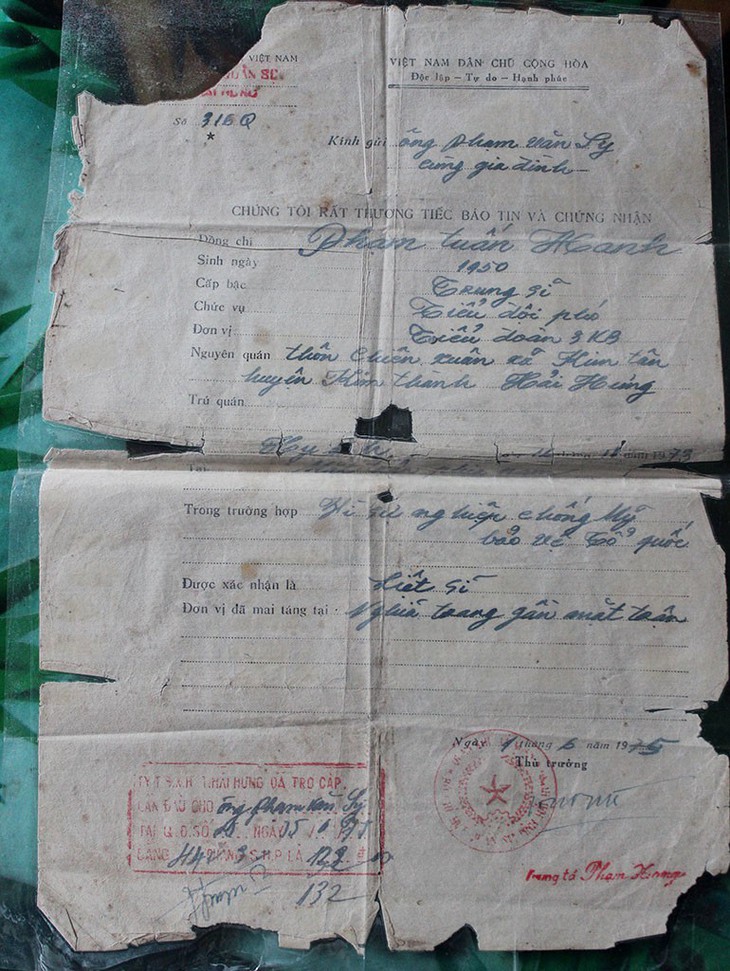 VIỆT NAM
VIỆT NAM DÂN CHỦ CỘNG HÒA
Độc lập - Tự do - Hạnh phúc
Số 316Q
*
Kính gửi ông Phạm Văn Sy
cùng gia đình
CHÚNG TÔI RẤT THƯƠNG TIẾC BÁO TIN VÀ CHỨNG NHẬN
Đồng chí Phạm Tuấn Hanh
Sinh ngày 1950
Cấp bậc Trung sĩ
Chức vụ Tiểu đội phó
Đơn vị Tiểu đoàn 3KB
Nguyên quán thôn Chiên xuân xã Kim tân
huyện Kim thành Hải Hưng
Trú quán
năm 1973
Tại
Trong trường hợp Vì sự nghiệp chống Mỹ
bảo vệ Tổ quốc
Được xác nhận là Liệt sĩ
Đơn vị đã mai táng tại: Nghĩa trang gần mặt trận
Ngày 1 tháng 6 năm 1975
Thủ trưởng
HẢI HƯNG ĐÃ TRỢ CẤP
LẦN ĐẦU CHO ông Phạm Văn Sy
TẠI Q.Đ.SỐ
BẰNG
LÀ
132
Trung tá Phạm